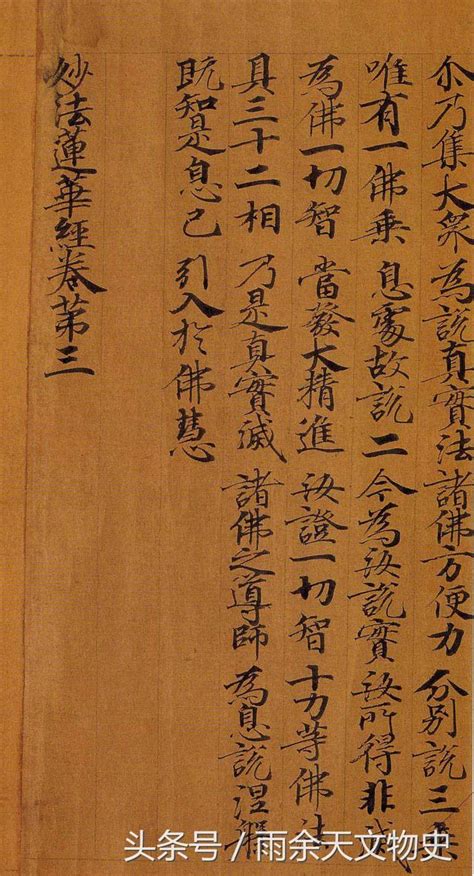 尒乃集大衆 為說真實法 諸佛方便力 分別說三乗
唯有一佛乗 息處故說二 今為汝說實 汝所得非滅
為佛一切智 當發大精進 汝證一切智 十力等佛法
具三十二相 乃是真實滅 諸佛之導師 為息說涅槃
既智是息已 引入於佛慧
妙法蓮華經卷第三
头条号/雨余天文物史